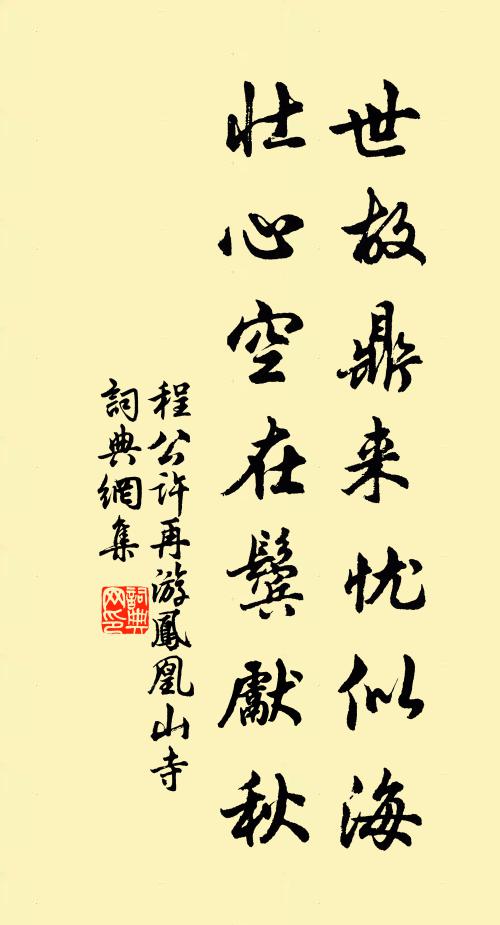 世故鼎来忧似海
壮心空在鬓獻秋
程公许再游鳳凰山寺
詞典網集
詞典
网印